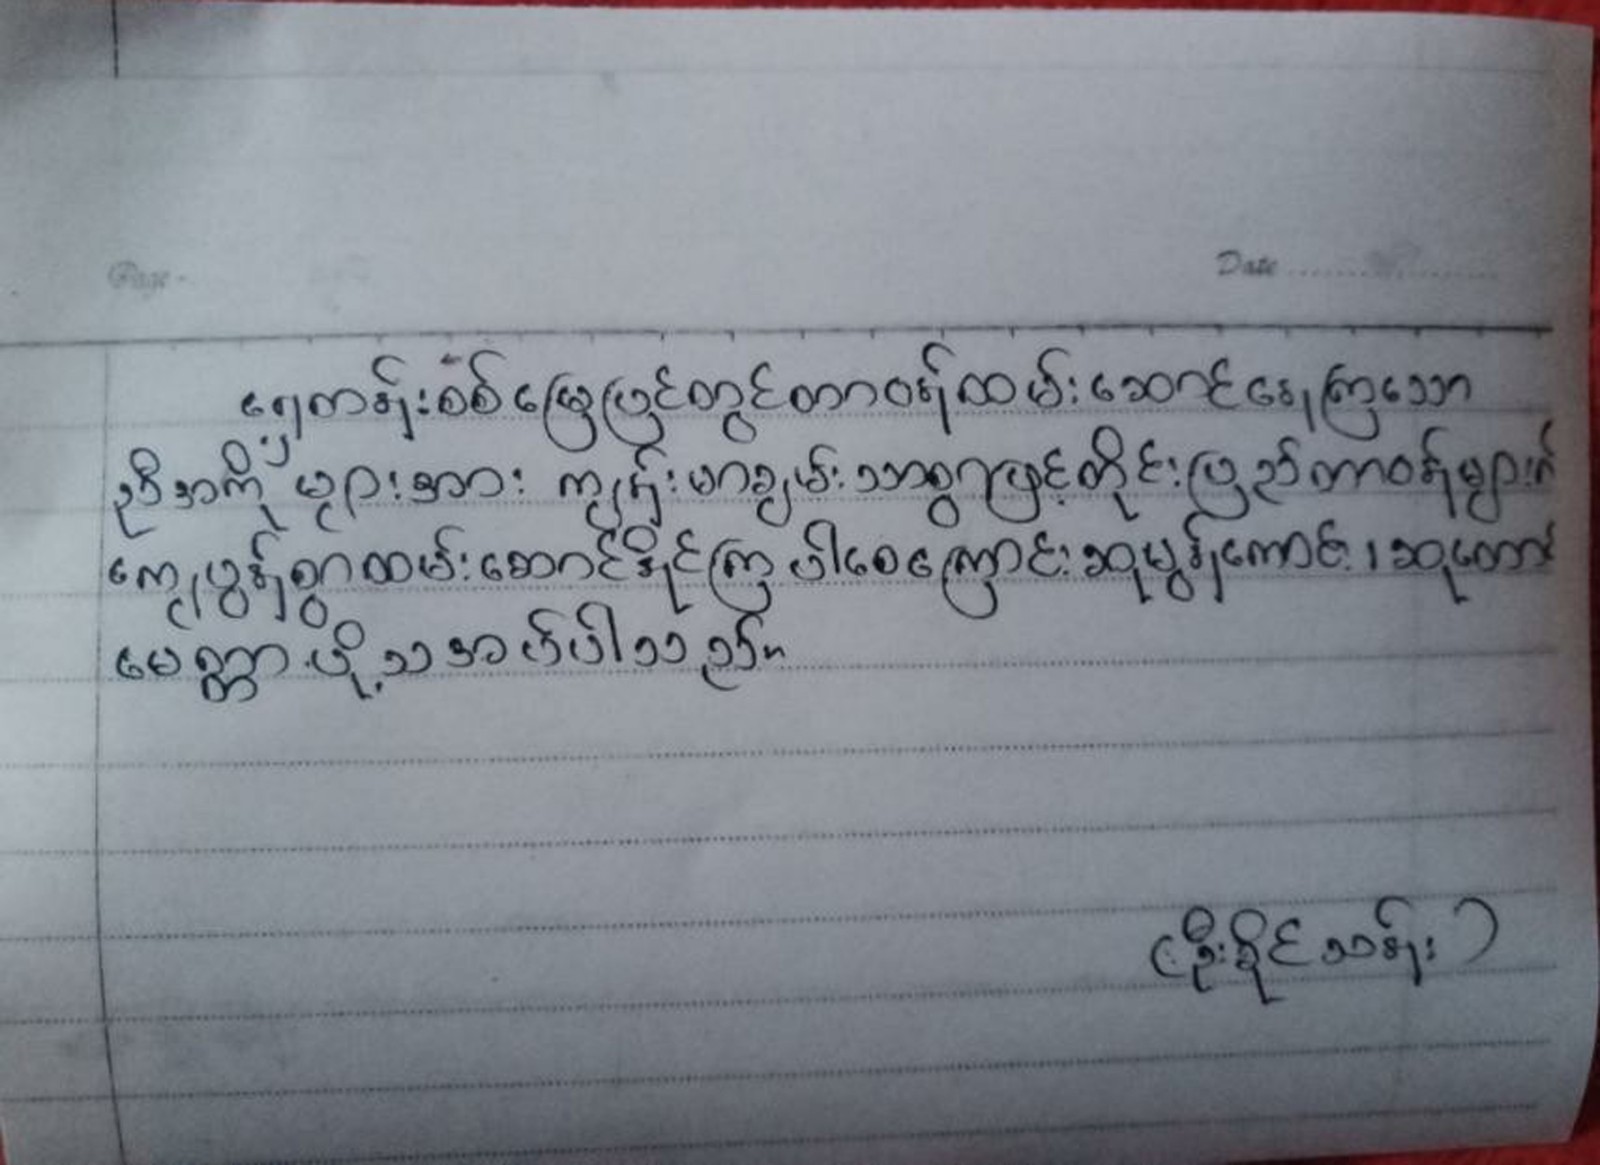 Page -
Date
ရှေ့တန်းစစ်မြေပြင်တွင်တာဝန်ထမ်းဆောင်နေကြသော
ညီအကိုများအား ကျန်းမာချမ်းသာစွာဖြင့်တိုင်းပြည်တာဝန်များကို
ကျေပွန်စွာထမ်းဆောင်နိုင်ကြပါစေကြောင်းဆုမွန်ကောင်း၊ဆုတောင်း
မေတ္တာပို့သအပ်ပါသည်။
(ဦးခိုင်သန်း)